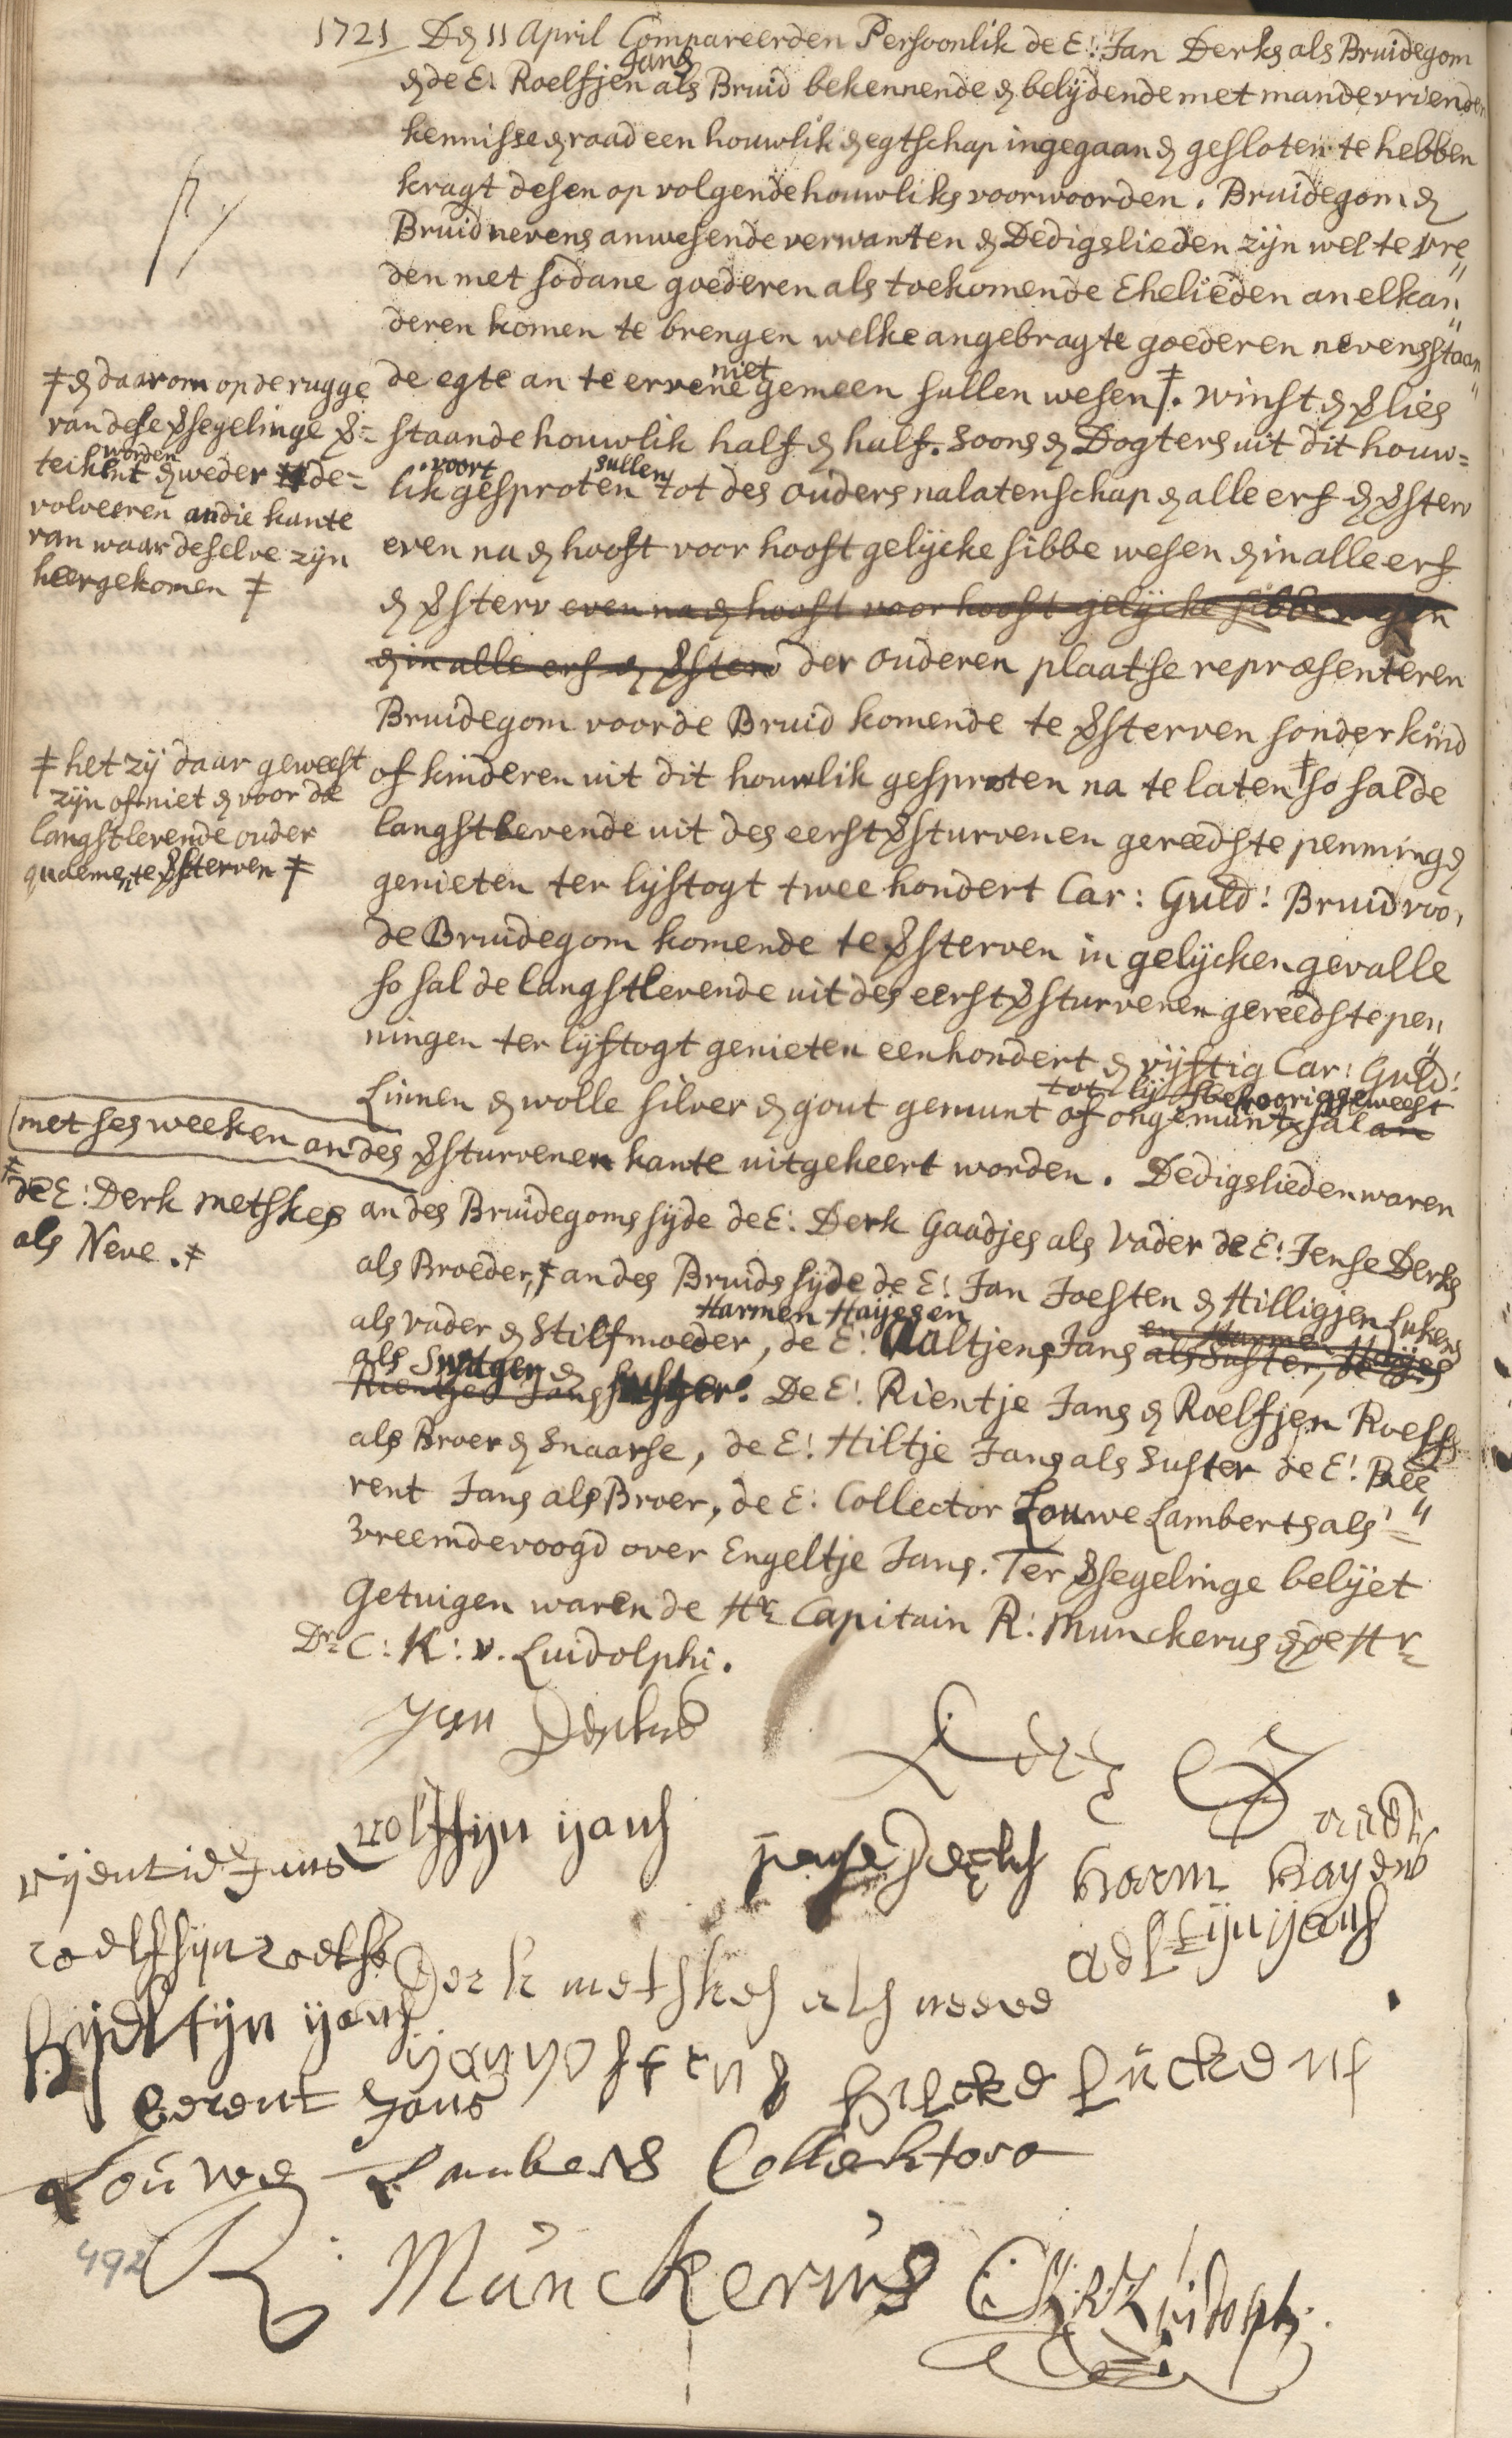 1721 Den 11 April Compareerden Persoonlik de E! Jan Derks als Bruidegom
Jans
en de E. Roelfjen als Bruid bekennende en belijdende met mande vrienden
kennisse en raad een houwlik en egtschap ingegaan en gesloten te hebben
kragt desen op volgende houwliks voorwoorden. Bruidegom en
Bruid nevens anwesende verwanten en Dedigslieden zijn wel te vre„
den met sodane goederen als toekomende Ehelieden an elkan„
deren komen te brengen welke angebragte goederen nevens staan„
niet
de egte an te ervene gemeen sullen wesen ‡. winst en verlies
‡ en daarom op de rugge
van dese versegelinge ver=
worden
teikent en weder de=
volveeren an die kante
van waar deselve zijn
heergekomen ‡
staande houwlik half en half. Soons en Dogters uit dit houw=
voort sullen
lik gesproten tot des ouders nalatenschap en alle erf en versterv
even na en hooft voor hooft gelijcke sibbe wesen en in alle erf
en versterv even na en hooft voor hooft gelijcke sibbe
en in alle erf en versterv der ouderen plaatse repræsenteren
Bruidegom voor de Bruid komende te versterven sonder kind
of kinderen uit dit houwlik gesproten na te laten ‡ so sal de
‡ het zij daar geweest
zijn of niet en voor de
langstlevende ouder
quamen te versterven ‡
langstlevende uit des eerst versturvenen gereedste penningen
genieten ter lijftogt twee hondert Car: Guld! Bruid voo,
de Bruidegom komende te versterven in gelijcken gevalle
so sal de langstlevende uit des eerst versturvenen gereedste pen„
ningen ter lijftogt genieten een hondert en vijftig Car: Guld!
tot lijfsbehoorig geweest
Linnen en wolle silver en gout gemunt of ongemunt sal an
met ses weeken an des versturvenen kante uitgekeert worden. Dedigslieden waren
an des Bruidegoms sijde de E: Derk Gaadjes als vader de E! Jense Derks
‡ de E: Derk Metskes
als Neve. ‡
als Broeder, ‡ an des Bruids sijde de E! Jan Joesten en Hilligjen Lukens
Harmen Haijesen
als vader en Stilfmoeder, de E! Aaltjens Jans als Suster, de
en Harmen Haijes
als Swager en
Rientjes Jans suster. De E! Rientje Jans en Roelfjen Roelfs
als Broer en Snaarse, de E! Hiltje Jans als Suster de E! Bee„
rent Jans als Broer, de E: Collector Louwe Lamberts als
vreemdevoogd over Engeltje Jans. Ter versegelinge belijet
Getuigen waren de Hr Capitain R: Munckerus en de Hr
Dr C: K: v. Luidolphi.
Jan Derks
rolfsijn ijans
rijentie Jans
Jense Derks
Harm Hayens
roelfsijn roelfs
Derk metskes als neeve
aeltijn ijans
hijeltijn ijans
ijan yostens
hilcke Luckens
berent Jans
Louwe Lambers Collecktoro
492
R: Munckerus
C: K: v. Luidolphi.